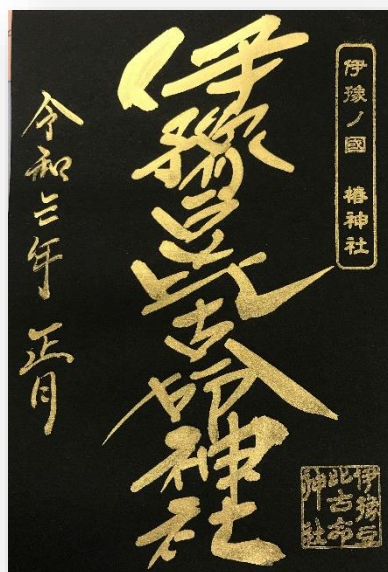 伊豫ノ國 椿神社
伊豫豆比古命神社
令和六年 正月
伊豫豆
比古命
神社